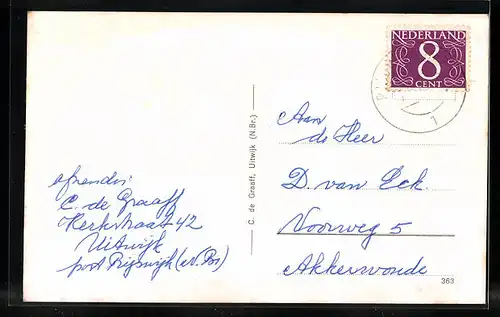 NEDERLAND
8
CENT
1
C. de Graaff, Uitwijk (N.Br.)
Aan
de Heer
D. van Eck.
Voorweg 5
Akkerwoude
afzender:
C. de Graaff
Kerkstraat 42
Uitwijk
post Rijswijk (N. Br)
363